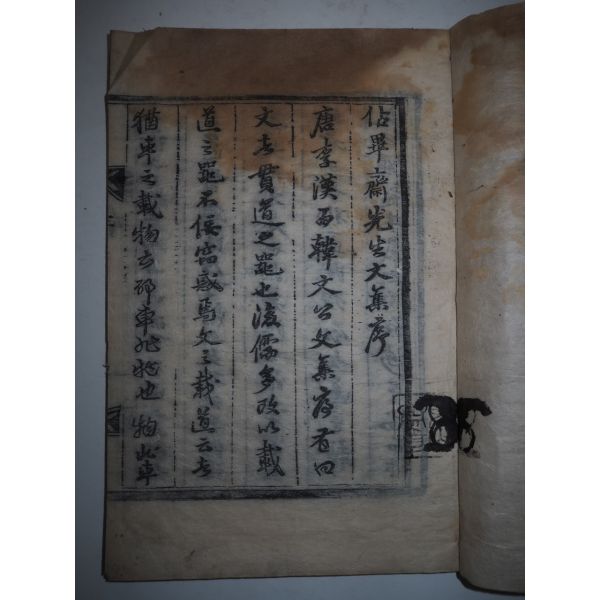 佔畢齋先生文集序
唐李漢序韓文公文集序有曰
文者貫道之器也後儒多改以載
道之器不佞窃惑焉文之載道云者
猶車之載物云耶車非物也物非車